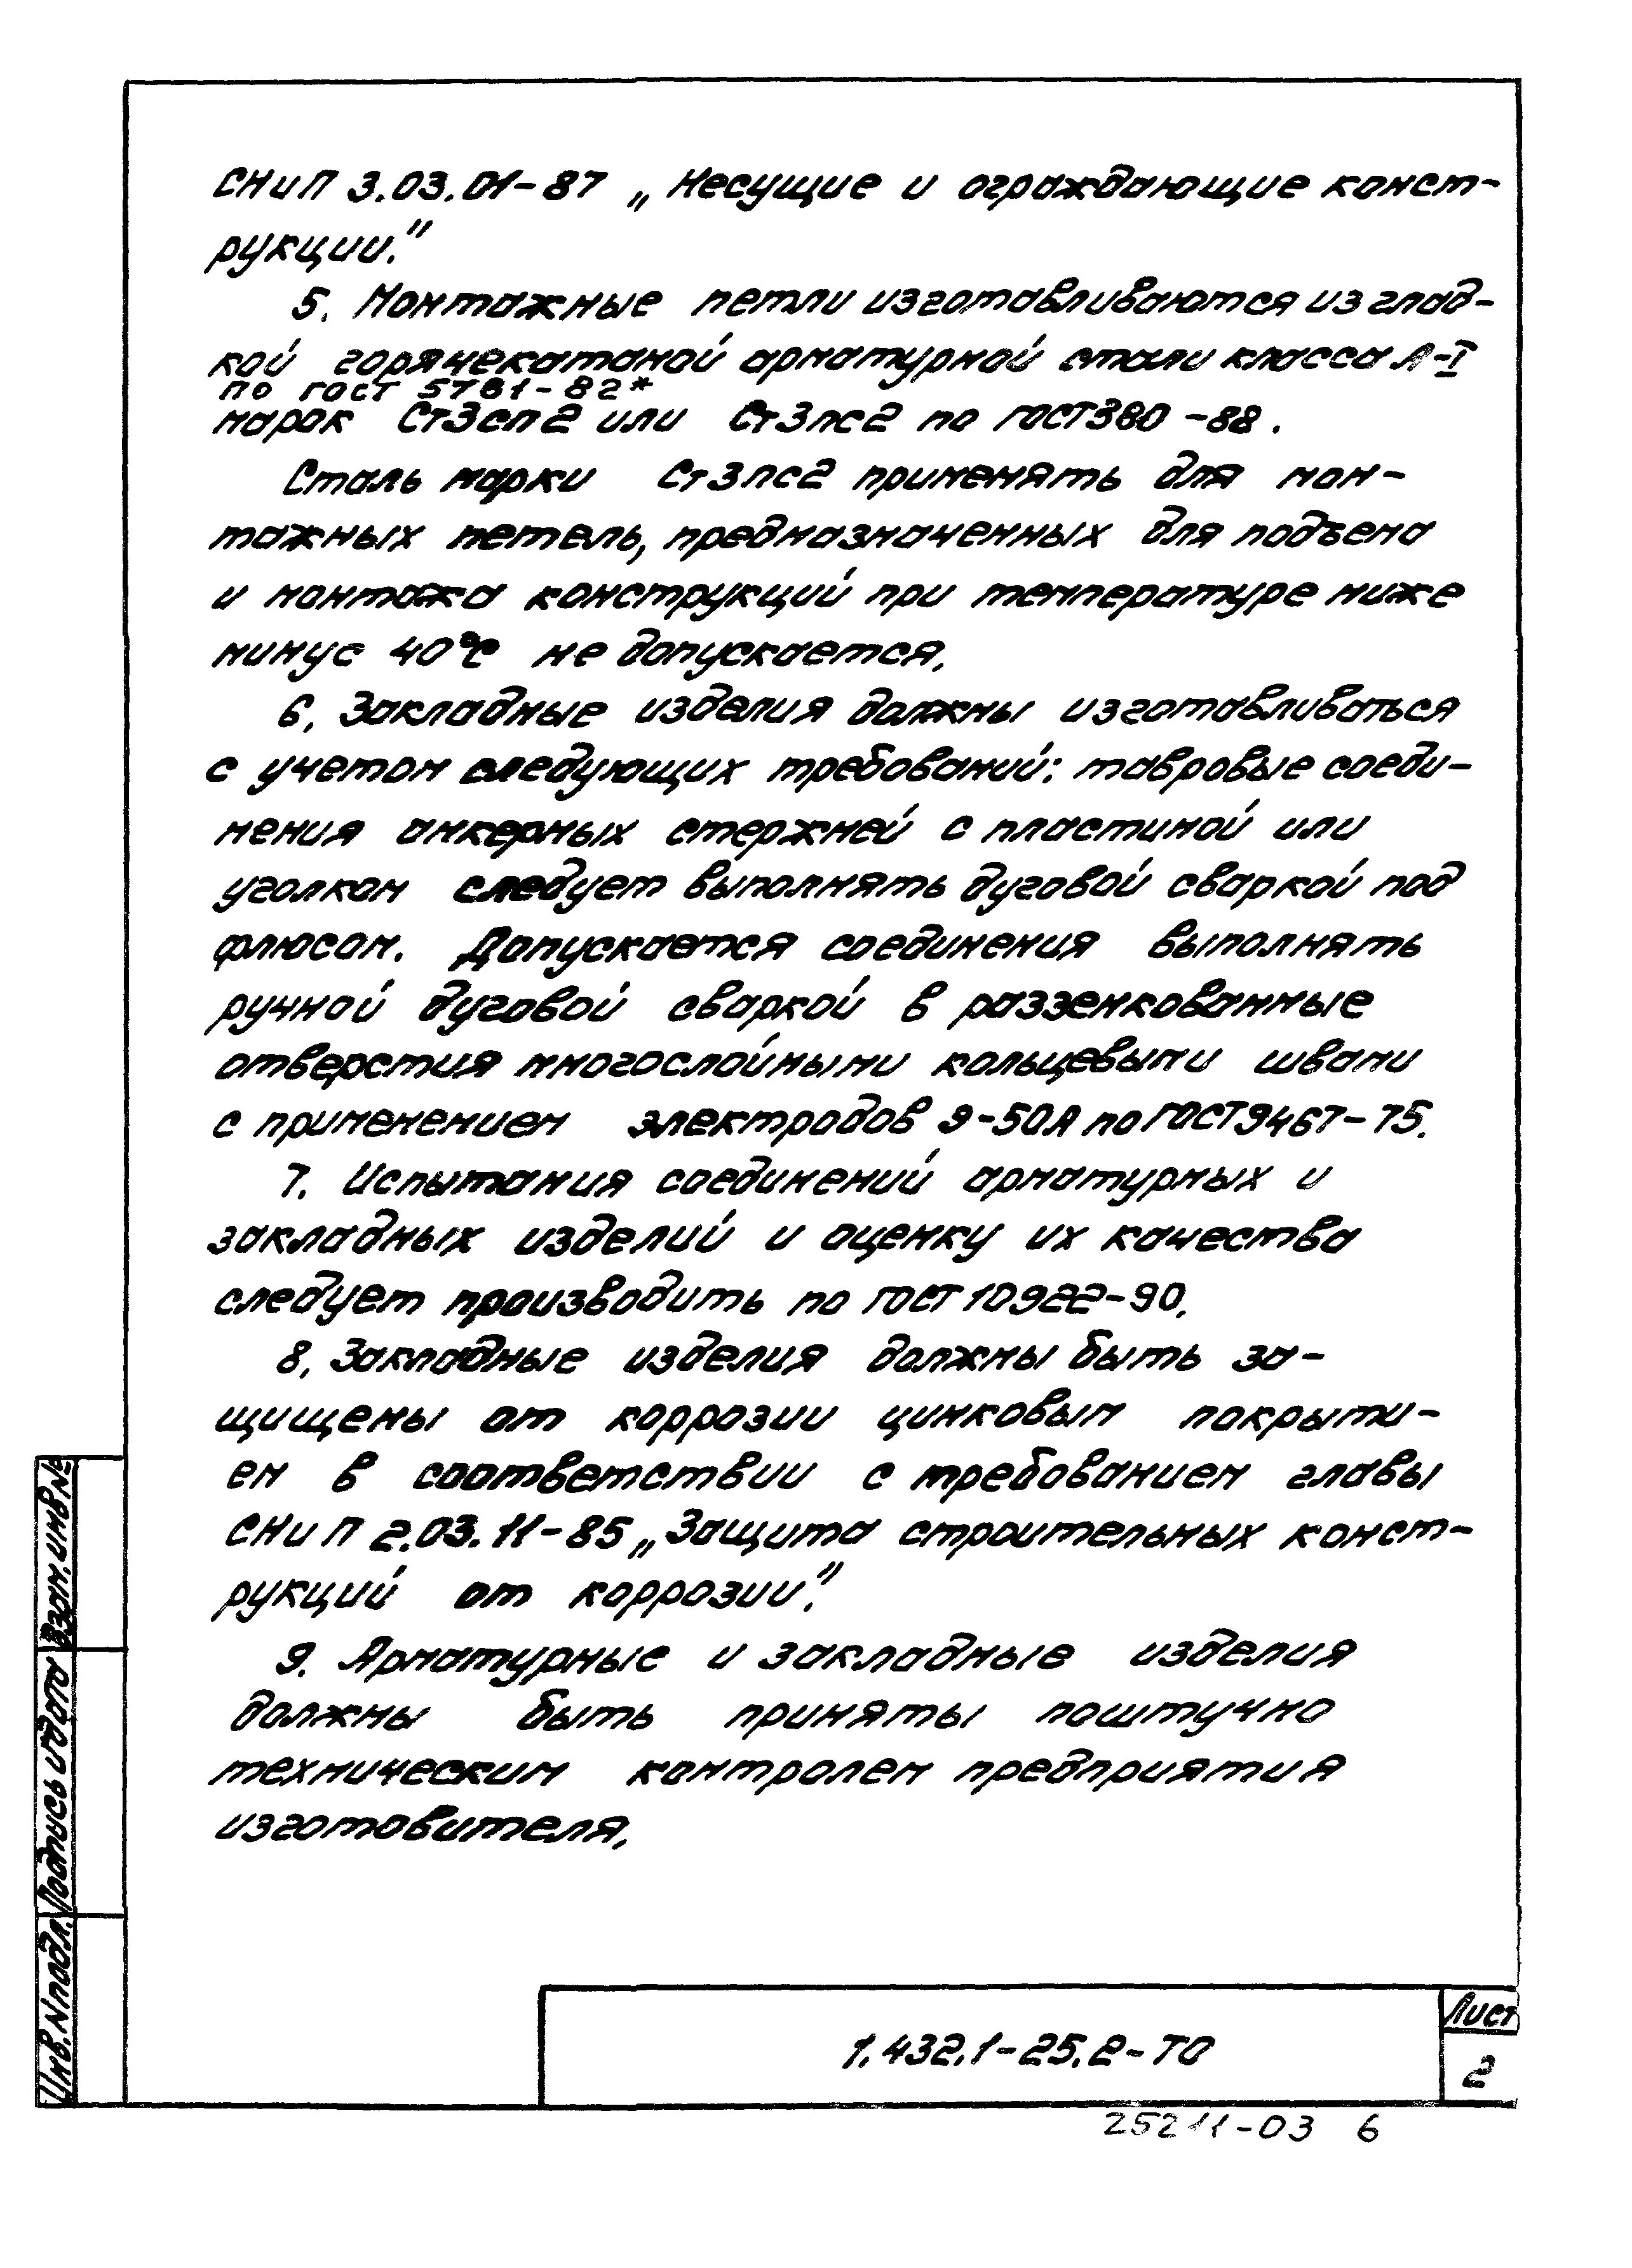 СНиП 3.03.01-87 „Несущие и ограждающие конст-
рукции."
5. Монтажные петли изготавливаются из глад-
кой горячекатаной арматурной стали класса А-I
по ГОСТ 5781-82*
марок Ст3сп2 или Ст3пс2 по ГОСТ380-88.
Сталь марки Ст3пс2 применять для мон-
тажных петель, предназначенных для подъема
и монтажа конструкций при температуре ниже
минус 40°С не допускается.
6. Закладные изделия должны изготавливаться
с учетом следующих требований: тавровые соеди-
нения анкерных стержней с пластиной или
уголком следует выполнять дуговой сваркой под
флюсом. Допускается соединения выполнять
ручной дуговой сваркой в раззенкованные
отверстия многослойными кольцевыми швами
с применением электродов Э-50А по ГОСТ9467-75.
7. Испытания соединений арматурных и
закладных изделий и оценку их качества
следует производить по ГОСТ 10922-90.
8. Закладные изделия должны быть за-
щищены от коррозии цинковым покрыти-
ем в соответствии с требованием главы
СНиП 2.03.11-85 „Защита строительных конст-
рукций от коррозии."
9. Арматурные и закладные изделия
должны быть приняты поштучно
техническим контролем предприятия
изготовителя.
Взам. инв №
Подпись и дата
Инв. N подл.
1.432.1-25.2-ТО
Лист
2
25211-03 6